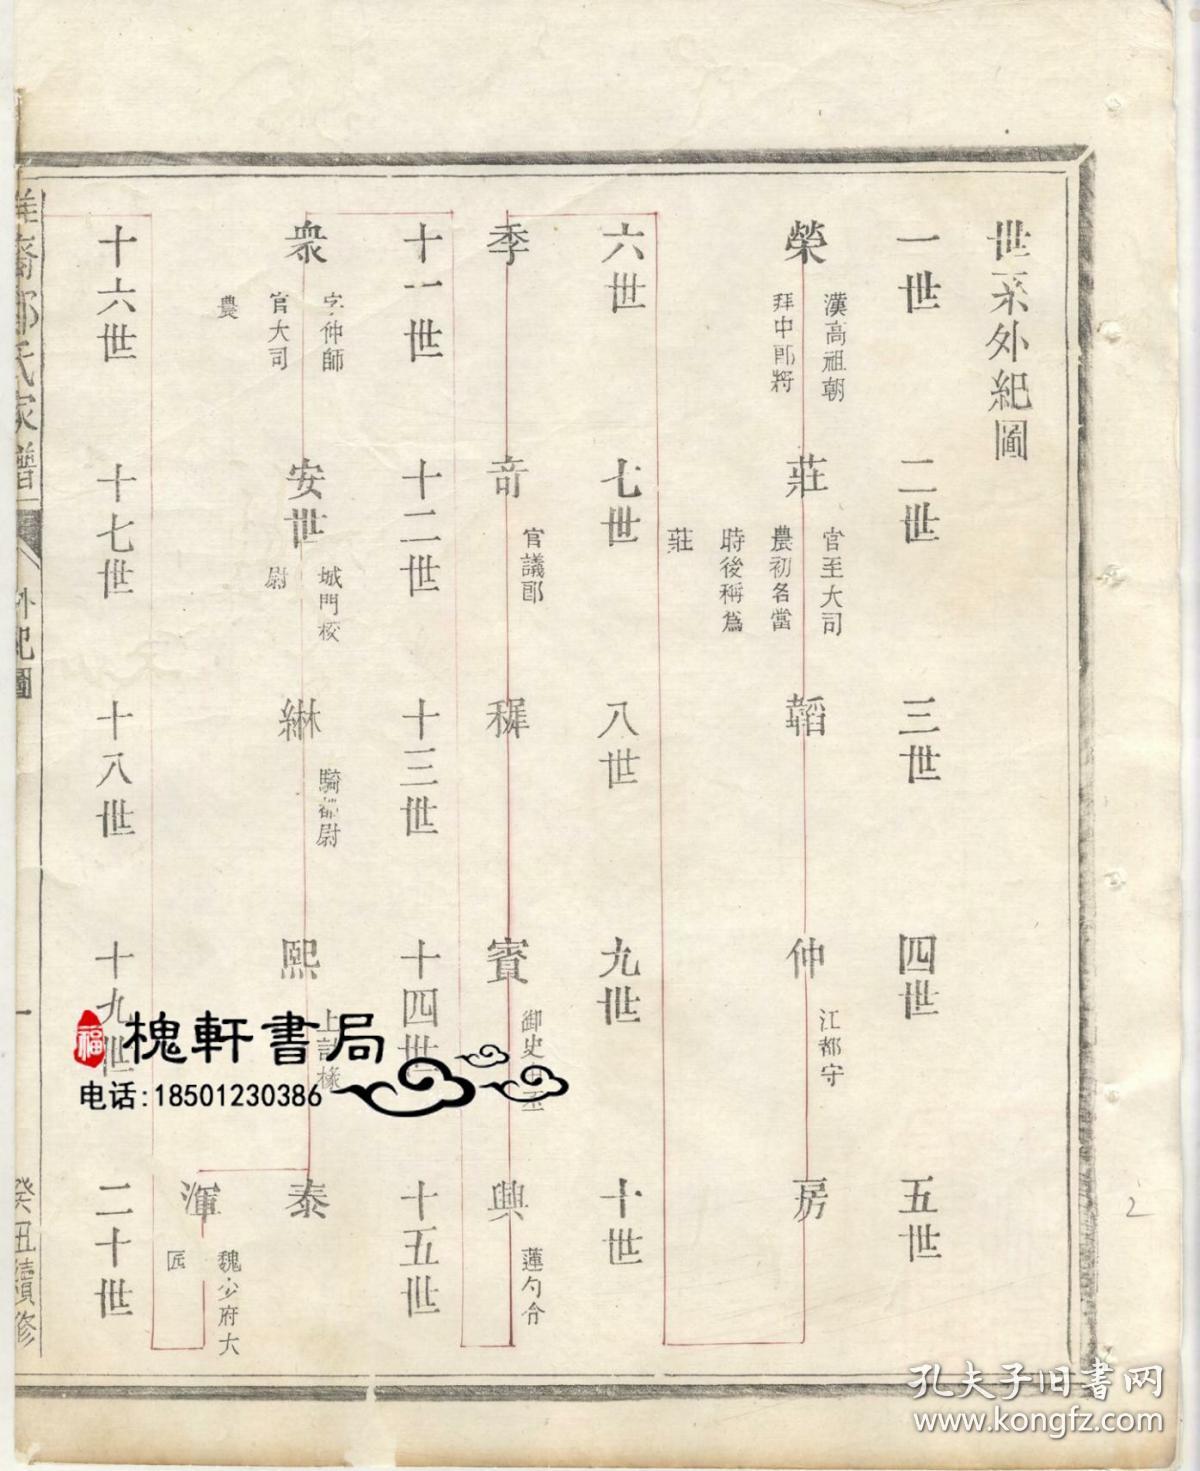 世系外紀圖
一世
二世
三世
四世
五世
榮
漢高祖朝
拜中郎將
莊
官至大司
農初名當
時後稱爲
莊
韜
仲
江都守
房
六世
七世
八世
九世
十世
季
奇
官議郎
穉
賓
御史
興
蓮勺令
十一世
十二世
十三世
十四世
十五世
衆
字仲師
官大司
農
安世
城門校
尉
綝
騎都尉
熙
上計掾
泰
渾
魏少府大
匠
十六世
十七世
十八世
十九世
二十世
氏家譜
外紀圖
一
癸丑續修
福
槐軒書局
电话:18501230386
2
孔夫子旧書网
www.kongfz.com